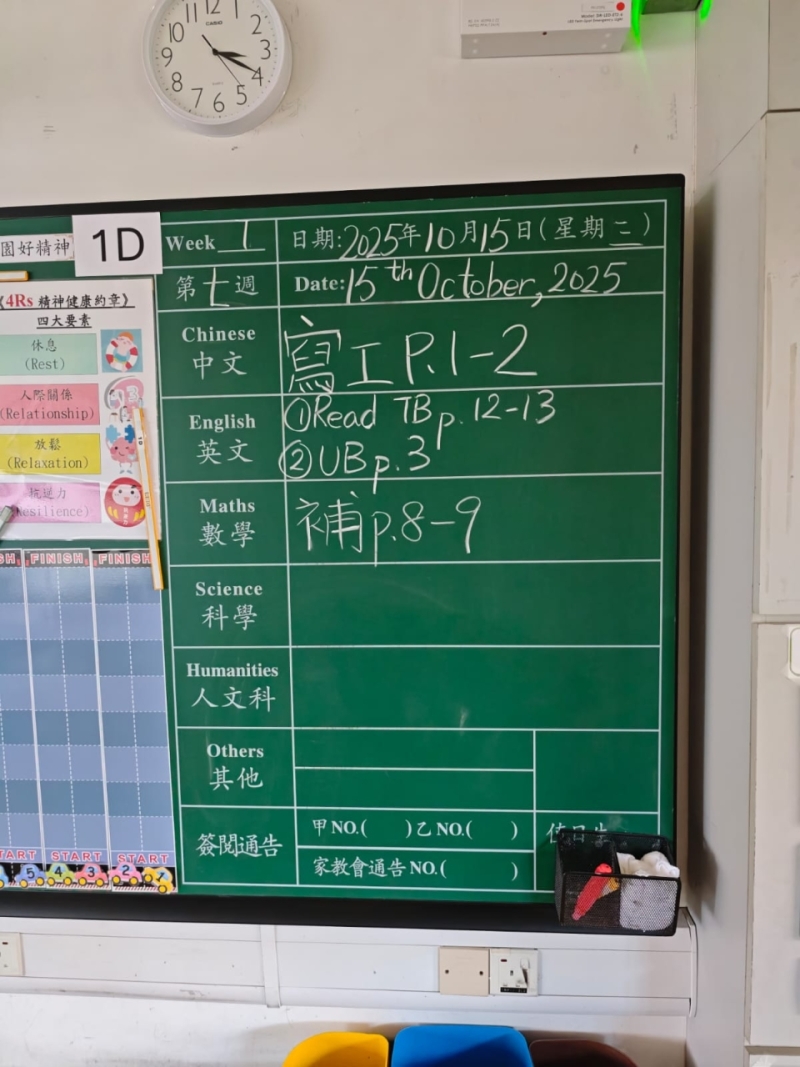 12
11
1
10
2
CASIO
9
3
8
4
7
5
6
園好精神
1D
Week 1
日期:2025年10月15日(星期三)
第七週
Date: 15th October, 2025
《4Rs 精神健康約章》
四大要素
休息
(Rest)
人際關係
(Relationship)
放鬆
(Relaxation)
抗逆力
Resilience)
Chinese
中文
寫工 P.1-2
English
英文
①Read TB p.12-13
②UB p.3
Maths
數學
補 p.8-9
Science
科學
Humanities
人文科
Others
其他
簽閱通告
甲NO.( )乙NO.( )
家教會通告NO.( )
值日生
SH FINISH FINISH
TART START START
5 4 3 2 1